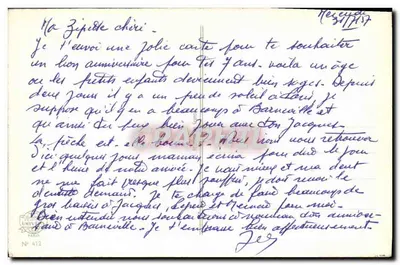 Mercredi
Ma Zipette chérie.
Je t'envoi une jolie carte pour te souhaiter
un bon anniversaire pour tes 7 ans. voilà un âge
ou les petits enfants deviennent bien sages. Depuis
deux jours il y a un peu de soleil à Je
suppose qu'il y en a beaucoup à Barneville et
qu'années du peux bien jouer avec ton Jacques.
la pêche est bonne. nous nous retrouver
d'ici quelques jours, maman écrira pour dire le jour
et l'heure de notre envoi. Je vais mieux et ma dent
ne me fait presque plus souffrir, je dois revoir le
dentiste demain. Je te charge de faire beaucoup de
gros baisers à Jacques, et pour moi.
Bien entendu nous souhaiterons à nouveau ton anniver-
saire à Barneville. Je t'embrasse bien affectueusement
N° 473